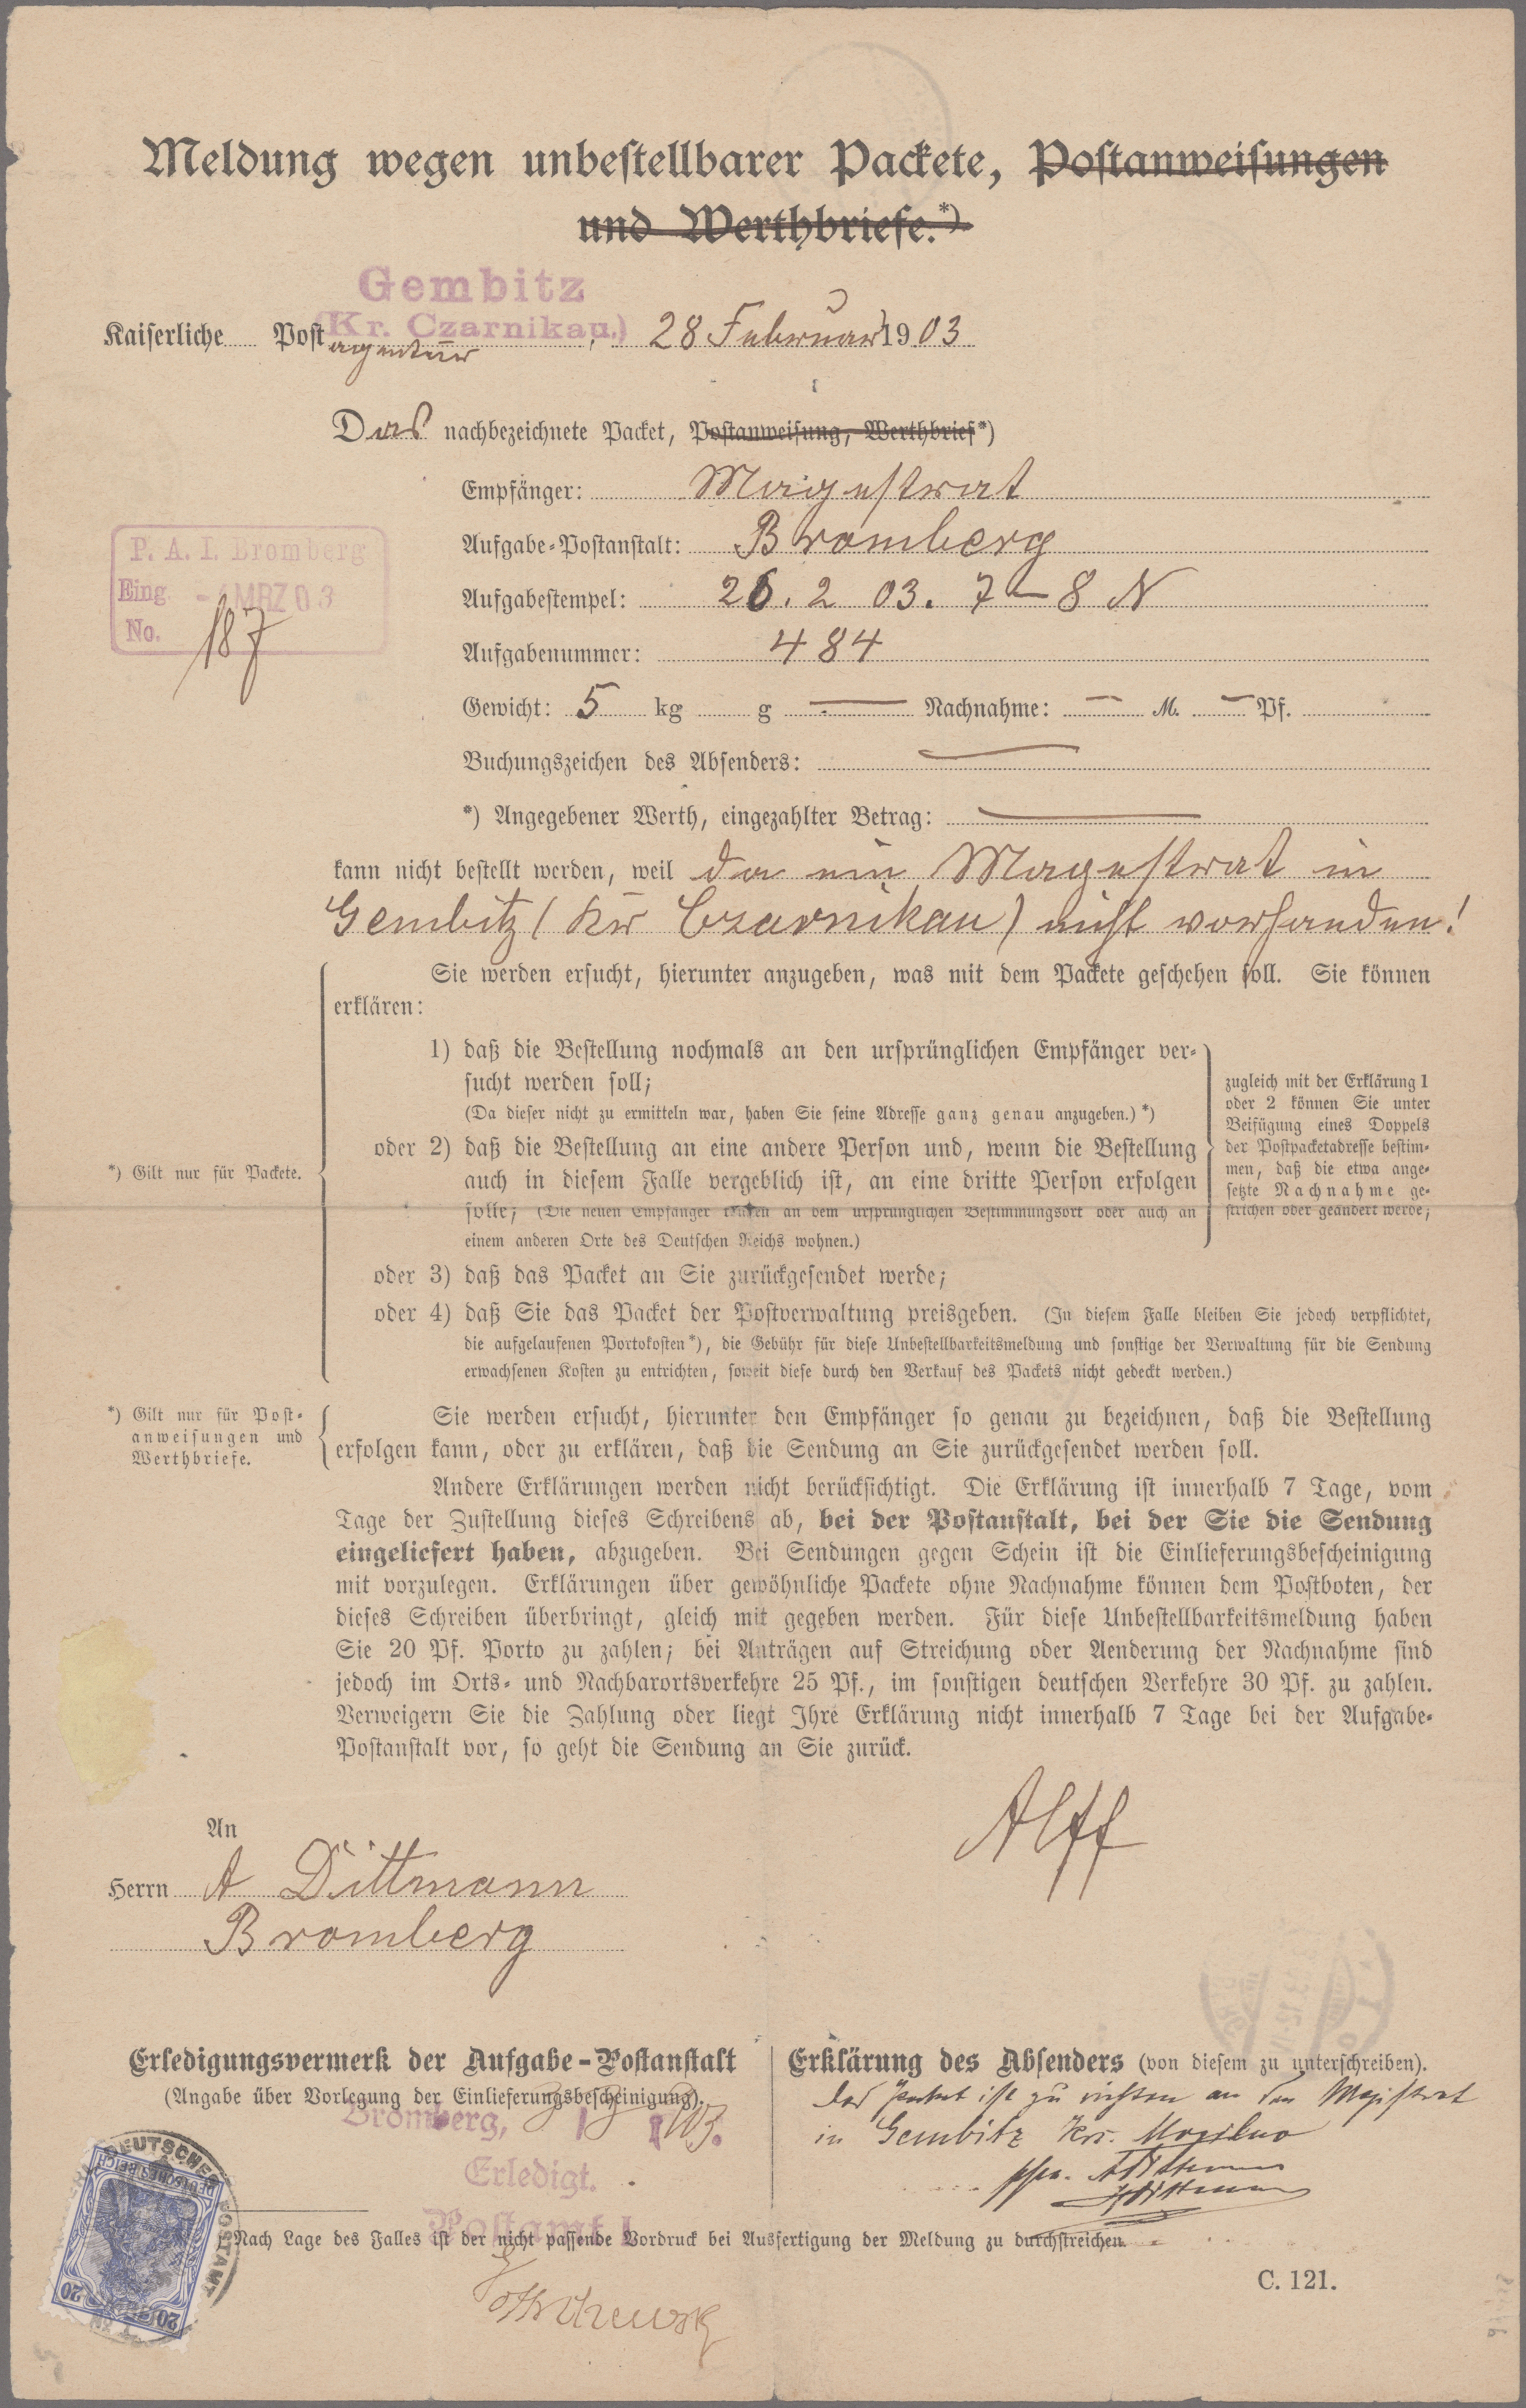 Meldung wegen unbestellbarer Packete, Postanweisungen
und Werthbriefe.*)
Gembitz
(Kr. Czarnikau.)
Kaiserliche Postagentur, 28 Februar 1903
Das nachbezeichnete Packet, Postanweisung, Werthbrief*)
Empfänger: Magestrat
Aufgabe-Postanstalt: Bromberg
P. A. I. Bromberg
Eing. - 4 MRZ 03
No. 187
Aufgabestempel: 26. 2 03. 7-8 N
Aufgabenummer: 484
Gewicht: 5 kg g — Nachnahme: — M. — Pf.
Buchungszeichen des Absenders: —
*) Angegebener Werth, eingezahlter Betrag: —
kann nicht bestellt werden, weil da ein Magestrat in
Gembitz (Kr Czarnikau) nicht vorhanden!
Sie werden ersucht, hierunter anzugeben, was mit dem Packete geschehen soll. Sie können
erklären:
1) daß die Bestellung nochmals an den ursprünglichen Empfänger ver-
sucht werden soll;
(Da dieser nicht zu ermitteln war, haben Sie seine Adresse ganz genau anzugeben.)*)
oder 2) daß die Bestellung an eine andere Person und, wenn die Bestellung
auch in diesem Falle vergeblich ist, an eine dritte Person erfolgen
solle; (Die neuen Empfänger können an dem ursprünglichen Bestimmungsort oder auch an
einem anderen Orte des Deutschen Reichs wohnen.)
zugleich mit der Erklärung 1
oder 2 können Sie unter
Beifügung eines Doppels
der Postpacketadresse bestim-
men, daß die etwa ange-
setzte Nachnahme ge-
strichen oder geändert werde;
*) Gilt nur für Packete.
oder 3) daß das Packet an Sie zurückgesendet werde;
oder 4) daß Sie das Packet der Postverwaltung preisgeben. (In diesem Falle bleiben Sie jedoch verpflichtet,
die aufgelaufenen Portokosten*), die Gebühr für diese Unbestellbarkeitsmeldung und sonstige der Verwaltung für die Sendung
erwachsenen Kosten zu entrichten, soweit diese durch den Verkauf des Packets nicht gedeckt werden.)
*) Gilt nur für Post-
anweisungen und
Werthbriefe.
Sie werden ersucht, hierunter den Empfänger so genau zu bezeichnen, daß die Bestellung
erfolgen kann, oder zu erklären, daß die Sendung an Sie zurückgesendet werden soll.
Andere Erklärungen werden nicht berücksichtigt. Die Erklärung ist innerhalb 7 Tage, vom
Tage der Zustellung dieses Schreibens ab, bei der Postanstalt, bei der Sie die Sendung
eingeliefert haben, abzugeben. Bei Sendungen gegen Schein ist die Einlieferungsbescheinigung
mit vorzulegen. Erklärungen über gewöhnliche Packete ohne Nachnahme können dem Postboten, der
dieses Schreiben überbringt, gleich mit gegeben werden. Für diese Unbestellbarkeitsmeldung haben
Sie 20 Pf. Porto zu zahlen; bei Anträgen auf Streichung oder Aenderung der Nachnahme sind
jedoch im Orts- und Nachbarortsverkehre 25 Pf., im sonstigen deutschen Verkehre 30 Pf. zu zahlen.
Verweigern Sie die Zahlung oder liegt Ihre Erklärung nicht innerhalb 7 Tage bei der Aufgabe-
Postanstalt vor, so geht die Sendung an Sie zurück.
Alff
An
Herrn A Dittmann
Bromberg
Erledigungsvermerk der Aufgabe-Postanstalt
(Angabe über Vorlegung der Einlieferungsbescheinigung).
Bromberg, 03.
Erledigt.
Postamt 1
Erklärung des Absenders (von diesem zu unterschreiben).
Das Packet ist zu richten an den Magistrat
in Gembitz Krs. Mogilno
ppa. A Dittmann
Nach Lage des Falles ist der nicht passende Vordruck bei Ausfertigung der Meldung zu durchstreichen.
C. 121.
DEUTSCHES POSTAMT
DEUTSCHES REICH
20 20